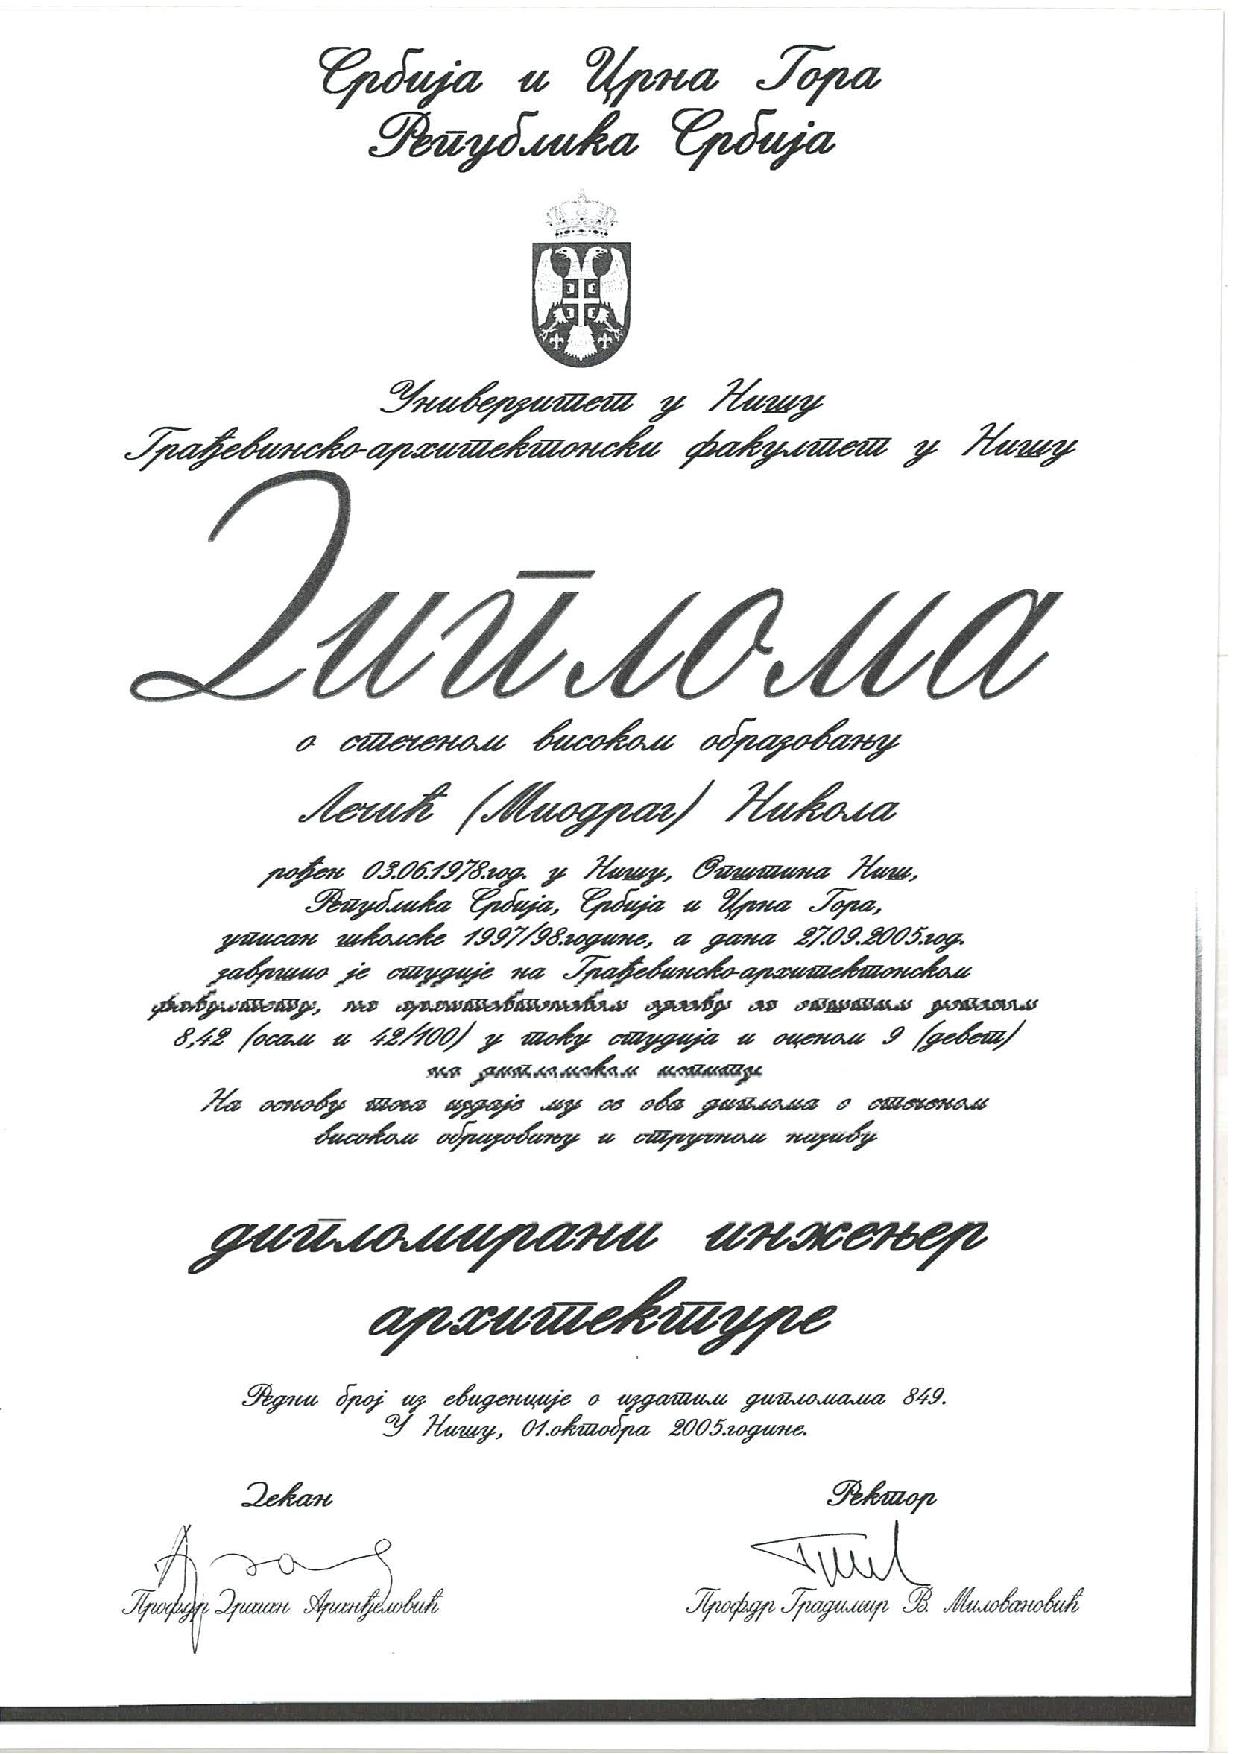 Србија и Црна Гора
Република Србија
Универзитет у Нишу
Грађевинско-архитектонски факултет у Нишу
Диплома
о стеченом високом образовању
Лечић (Миодраг) Никола
рођен 03.06.1978.год. у Нишу, Општина Ниш,
Република Србија, Србија и Црна Гора,
уписан школске 1997/98.године, а дана 27.09.2005.год.
завршио је студије на Грађевинско-архитектонском
факултету, на архитектонском одсеку са општим успехом
8,42 (осам и 42/100) у току студија и оценом 9 (девет)
на дипломском испиту.
На основу тога издаје му се ова диплома о стеченом
високом образовању и стручном називу
дипломирани инжењер
архитектуре
Редни број из евиденције о издатим дипломама 849.
У Нишу, 01.октобра 2005.године.
Декан
Ректор
Проф.др Драган Аранђеловић
Проф.др Градимир В. Миловановић